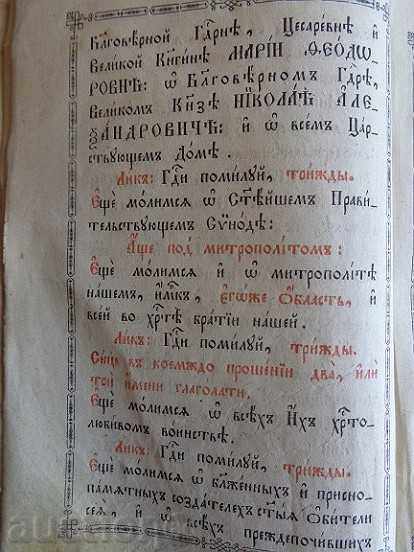 Бл҃говѣрной Гдⷭ҇рнѣ, Цесаревнѣ и҆
Великой Кнѧгинѣ МАРІИ ѲЕОДѠ-
РОВНѢ: ѡ҆ Бл҃говѣрномъ Гдⷭ҇рѣ,
Великомъ Кнѧзѣ НІКОЛАѢ А҆ЛЕ-
ѮАНДРОВИЧѢ: и҆ ѡ҆ всемъ Цар-
ствующемъ Домѣ.
Ликъ: Гдⷭ҇и поми́лꙋй, три́жды.
Е҆щѐ мо́лимсѧ ѡ҆ Ст҃ѣ́йшемъ Прави́-
тельствꙋющемъ Сѷно́дѣ:
А҆́ще под̾ митрополі́томъ:
Е҆щѐ мо́лимсѧ и҆ ѡ҆ митрополі́тѣ
на́шемъ, и҆м҃къ, є҆гѡ́же ѻ҆́бласть, и҆
все́й во хрⷭ҇тѣ̀ бра́тїи на́шей.
Ликъ: Гдⷭ҇и поми́лꙋй, три́жды.
Си́це въ ко́емждо проше́нїи два̀, и҆лѝ
трѝ и҆́мени глаго́лати.
Е҆щѐ мо́лимсѧ ѡ҆ всѣ́хъ И҆́хъ хрⷭ҇то-
люби́вомъ во́инствѣ.
Ликъ: Гдⷭ҇и поми́лꙋй, три́жды.
Е҆щѐ мо́лимсѧ ѡ҆ бл҃же́нныхъ и҆ присно-
па́мѧтныхъ созда́телехъ ст҃ы́ѧ ѻ҆би́тели
сеѧ̀, и҆ ѡ҆ всѣ́хъ преждепочи́вшихъ